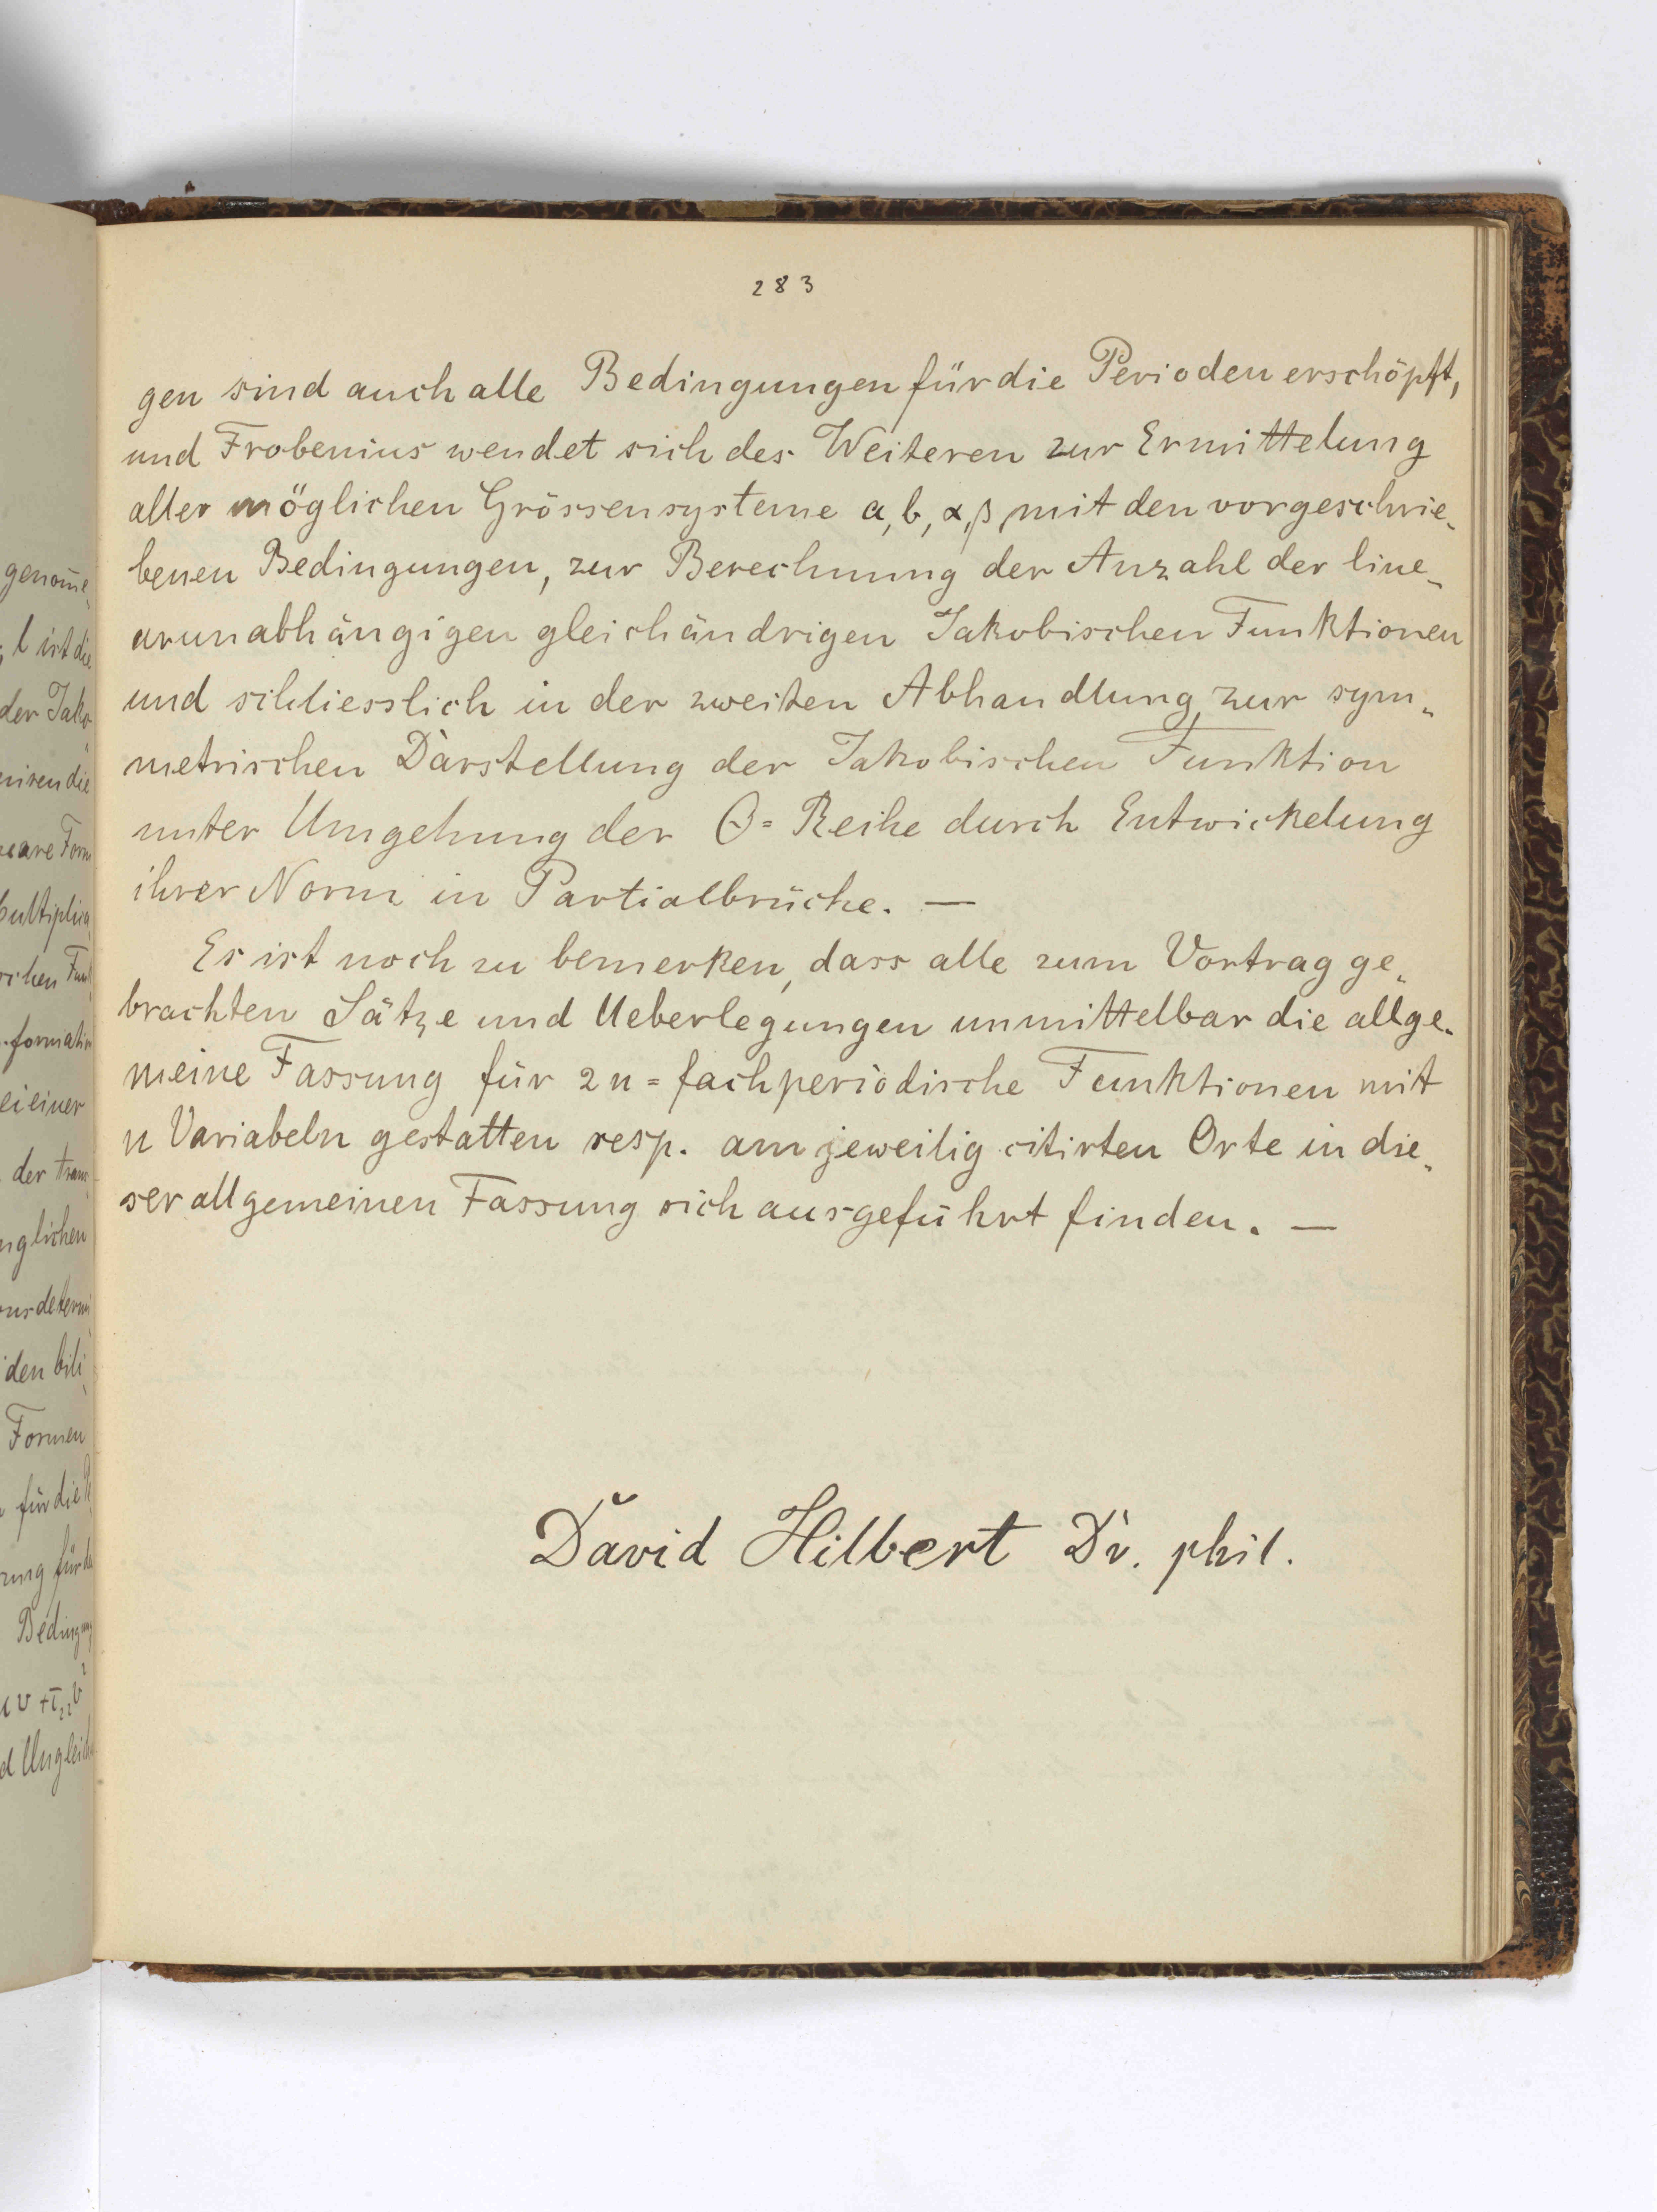 283
gen sind auch alle Bedingungen für die Perioden erschöpft,
und Frobenius wendet sich des Weiteren zur Ermittelung
aller möglichen Grössensysteme a, b, α, β, mit den vorgeschrie-
benen Bedingungen, zur Berechnung der Anzahl der line-
arunabhängigen gleichändrigen Jakobischen Funktionen
und schliesslich in der zweiten Abhandlung, zur sym-
metrischen Darstellung der Jakobischen Funktion
unter Umgehung der Θ=Reihe durch Entwickelung
ihrer Norm in Partialbrüche. —
Es ist noch zu bemerken, dass alle zum Vortrag ge-
brachten Sätze und Ueberlegungen unmittelbar die allge-
meine Fassung für 2n=fachperiodische Funktionen mit
n Variabeln gestatten resp. am jeweilig citirten Orte in die-
ser allgemeinen Fassung sich ausgeführt finden. —
David Hilbert Dr. phil.
genom̅e-
l ist die
der Jako-
die
Form
schen
formation
einer
der trans-
den bili-
Formen
für die
für
Beding